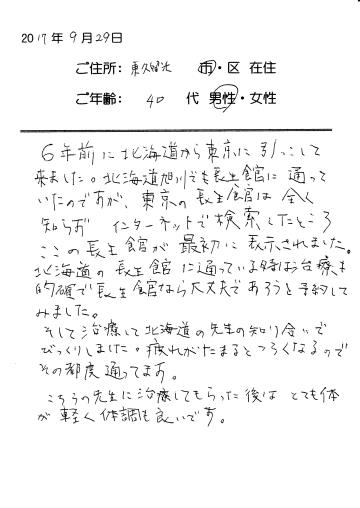 2017年 9月 29日
ご住所: 東久留米 市・区 在住
ご年齢: 40 代 男性・女性
6年前に北海道から東京に引っこして
来ました。北海道旭川でも長生館に通って
いたのですが、東京の長生館は全く
知らず インターネットで検索したところ
ここの長生館が最初に表示されました。
北海道の長生館に通っている時はお治療も
的確で長生館なら大丈夫であろうと予約して
みました。
そして治療して北海道の先生の知り合いで
びっくりしました。疲れがたまるとつらくなるので
その都度通ってます。
こちらの先生に治療してもらった後はとても体
が軽く体調も良いです。